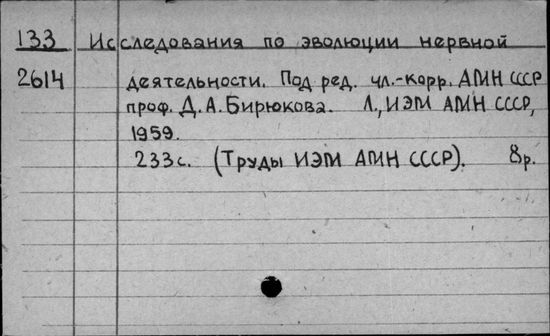 133 Исследования по эволюции нервной
2614 деятельности. Под ред. чл.-корр. АМН СССР
проф. Д.А.Бирюкова. Л., ИЭМ АМН СССР,
1959.
233с. (Труды ИЭМ АМН СССР). 8р.